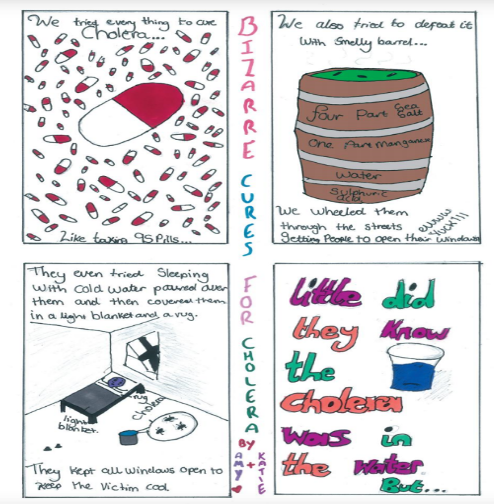 We tried every thing to cure
Cholera...
Like taking 95 Pills...
We also tried to defeat it
With Smelly barrel...
four Part Sea
Salt
One Part Manganese
Water
Sulphuric
acid
We wheeled them
through the streets
getting People to open their windows
BIZARRE CURES FOR CHOLERA BY AMY + KATIE
They even tried Sleeping
With Cold Water poured over
them and then covered them
in a light blanket and a rug.
rug
light
blanket
Cholera
They kept all windows open to
keep the victim cool
little did
they know
the
Cholera
Was in
the water
But...